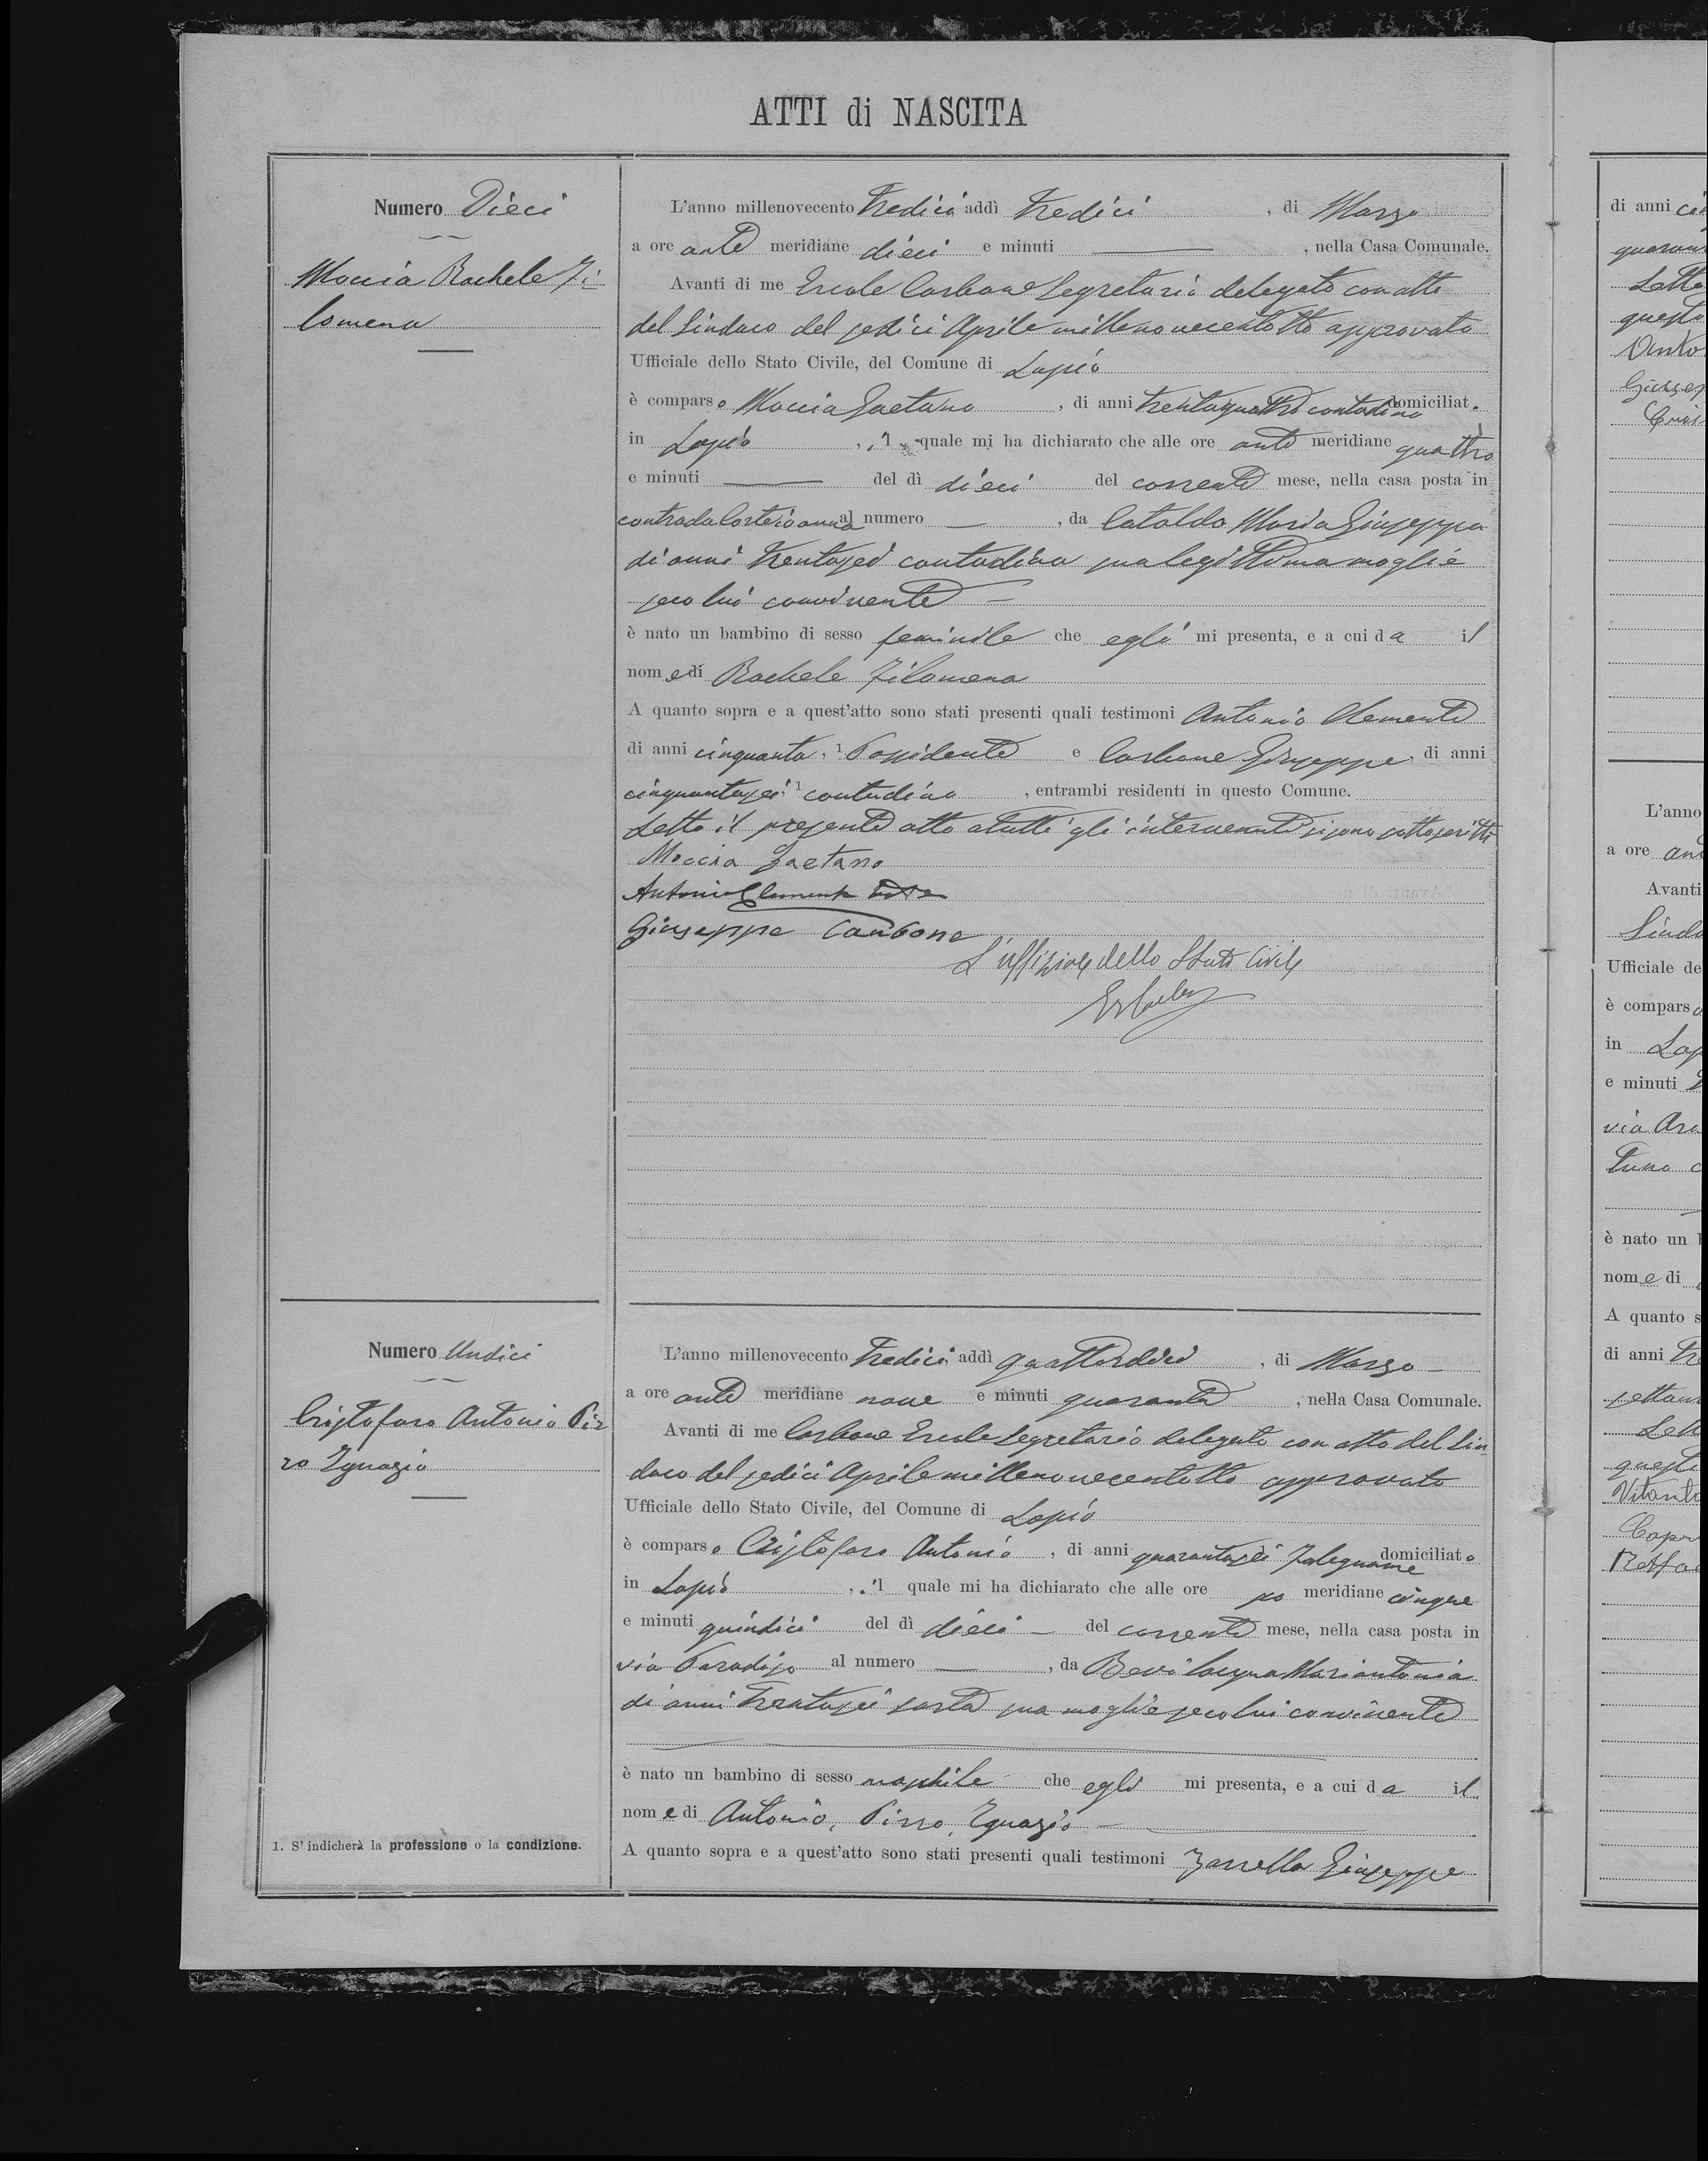 ATTI di NASCITA
Numero Dieci
Moccia Rachele Fi
lomena
L'anno millenovecento tredici addì tredici, di Marzo
a ore ante meridiane dieci e minuti —, nella Casa Comunale.
Avanti di me Ercole Carbone Segretario delegato con atto
del Sindaco del sedici Aprile millenovecentotto approvato
Ufficiale dello Stato Civile, del Comune di Lapio
è comparso Moccia Gaetano, di anni trentaquattro contadino domiciliato
in Lapio, il quale mi ha dichiarato che alle ore ante meridiane quattro
e minuti — del dì dieci del corrente mese, nella casa posta in
contrada al numero —, da Cataldo Maria Giuseppa
di anni trentasei contadina sua legittima moglie
seco lui convivente —
è nato un bambino di sesso feminile che egli mi presenta, e a cui da il
nome di Rachele Filomena
A quanto sopra e a quest'atto sono stati presenti quali testimoni Antonio Clemente
di anni cinquanta, 1 Possidente e Carbone Giuseppe, di anni
cinquantasei, 1 contadino, entrambi residenti in questo Comune.
Letto il presente atto a tutti gli intervenuti si sono sottoscritti
Moccia Gaetano
Antonio Clemente teste
Giuseppe Carbone
L'uffiziale dello Stato Civile
Numero Undici
Cristofaro Antonio Pir
ro Ignazio
L'anno millenovecento tredici addì quattordici, di Marzo —
a ore ante meridiane nove e minuti quaranta, nella Casa Comunale.
Avanti di me Carbone Ercole Segretario delegato con atto del Sin
daco del sedici Aprile millenovecentotto approvato
Ufficiale dello Stato Civile, del Comune di Lapio
è comparso Cristofaro Antonio, di anni quarantasei falegname domiciliato
in Lapio, il quale mi ha dichiarato che alle ore po meridiane cinque
e minuti quindici del dì dieci — del corrente mese, nella casa posta in
via Paradiso al numero —, da Bevilacqua Mariantonia
di anni trentasei sarta sua moglie seco lui convivente
è nato un bambino di sesso maschile che egli mi presenta, e a cui da il
nome di Antonio, Pirro, Ignazio —
A quanto sopra e a quest'atto sono stati presenti quali testimoni Zarrella Giuseppe
1. S'indicherà la professione o la condizione.
di anni
questo
L'anno
a ore
Avanti
Ufficiale de
è compars
in Lap
e minuti
via
è nato un
nome di
A quanto s
di anni